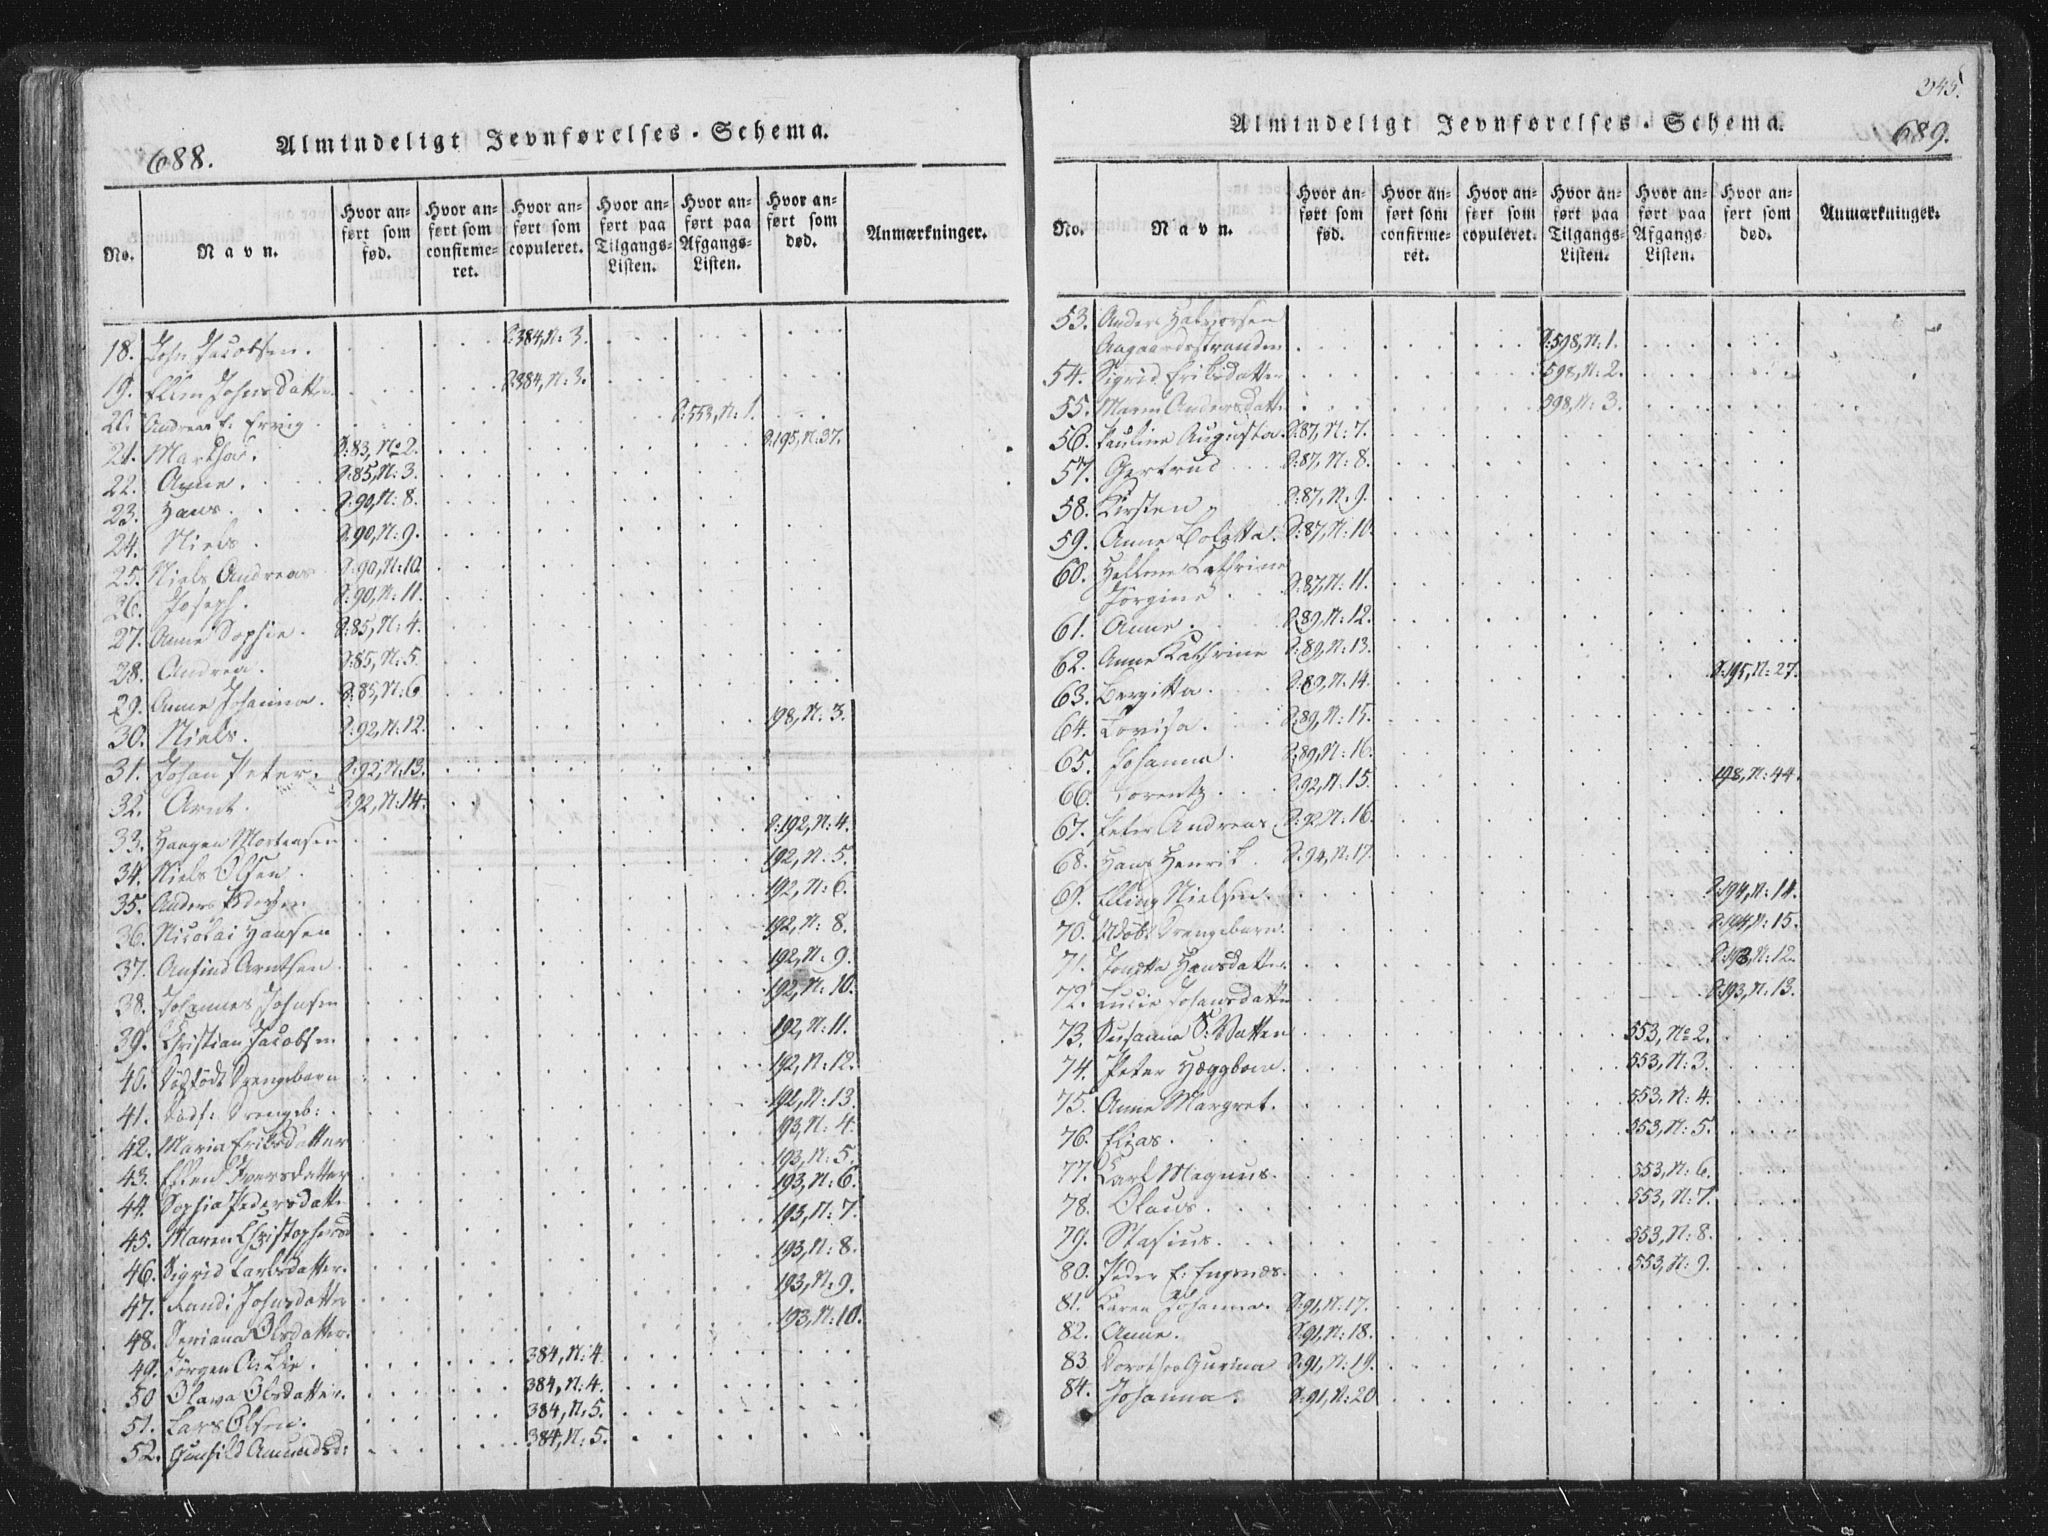 688. Almindeligt Jevnførelses-Schema.
No. Navn. Hvor anført som fød. Hvor anført som confirmeret. Hvor anført som copuleret. Hvor anført paa Tilgangs-Listen. Hvor anført paa Afgangs-Listen. Hvor anført som død. Anmærkninger.
18. John Jacobsen. P:384, N: 3.
19. Ellen Johnsdatter P:384, N: 3.
20. Andreas E: Ervig P:553, N: 1.
21. Martha. P:83, No 2. P:195, N: 37.
22. Anne. P:85, N: 3.
23. Hans. P:90, N: 8.
24. Niels. P:90, N: 9.
25. Niels Andreas P:90, N: 10.
26. Joseph. P:90, N: 11.
27. Anne Sophie. P:85, N: 4.
28. Andrea. P:85, N: 5.
29. Anne Johanna. P:85, N: 6
30. Niels. P:92, N: 12. 198, N: 3.
31. Johan Peter. P:92, N: 13.
32. Arnt. P:92, N: 14.
33. Haagen Mortensen P:192, N: 4.
34. Niels Olsen. 192, N: 5.
35. Anders 192, N: 6.
36. Nicolai Hansen 192, N: 8.
37. Anfind Arntsen. 192, N: 9.
38. Johannes Johnsen 192, N: 10.
39. Christian Jacobsen 192, N: 11.
40. Dødfødt Drengebarn 192, N: 12.
41. Dødf: Drengeb: 192, N: 13.
42. Maria Eriksdatter 193, N: 4.
43. Ellen Iversdatter 193, N: 5.
44. Sophia Pedersdatt. 193, N: 6.
45. Maren Christophersd 193, N: 7.
46. Sigrid Larsdatter. 193, N: 8.
47. Randi Johnsdatter 193, N: 9.
48. Seriana Olsdatter. 193, N: 10.
49. Jørgen A: Lie. 384, N: 4.
50 Olava Olsdatter. 384, N: 4.
51. Lars Olsen. 384, N: 5.
52. Gunhild Amundsd: 384, N: 5.
345.
Almindeligt Jevnførelses-Schema. 689.
No. Navn. Hvor anført som fød. Hvor anført som confirmeret. Hvor anført som copuleret. Hvor anført paa Tilgangs-Listen. Hvor anført paa Afgangs-Listen. Hvor anført som død. Anmærkninger.
53. Anders Halvorsen
Aagaardsstranden P:598, N: 1.
54. Sigrid Eriksdatter 598, N: 2.
55. Maren Andersdatter 598, N: 3.
56. Pauline Augusta. P:87, N: 7.
57. Gertrud P:87, N: 8.
58. Kirsten P:87, N: 9.
59. Anne Boletta. P:87, N: 10.
60. Hellene Cathrine
Jørgine P:87, N: 11.
61. Anne. P:89, N: 12.
62. Anne Kathrine P:89, N: 13.
63. Bergitta. P:89, N: 14. P:195, N: 27.
64. Lovisa. P:89, N: 15.
65. Johanna. P:89, N: 16.
66. Lorentz. P:92, N: 15. 198, N: 44.
67. Peter Andreas. P:92 N: 16.
68. Hans Henrik. P:94, N: 17.
69. Elling Nielsen. P:194, N: 14.
70. Udøbt Drengebarn. P:194, N: 15.
71. Jonetta Hansdatter. P:193, N: 12.
72. Lucie Johansdatter P:193, N: 13.
73. Susanna S: Vatten 553, No 2.
74. Peter Hæggbom. 553, N: 3.
75. Anne Margret. 553, N: 4.
76. Elias. 553, N: 5.
77. Carl Magnus. 553, N: 6.
78. Olaus. 553, N: 7.
79. Stasius. 553, N: 8.
80. Peder E: Engsnæs. 553, N: 9.
81. Karen Johanna. P:91, N: 17.
82. Anne. P:91, N: 18.
83 Dorothea Gurina P:91, N: 19.
84. Johanna. P:91, N: 20